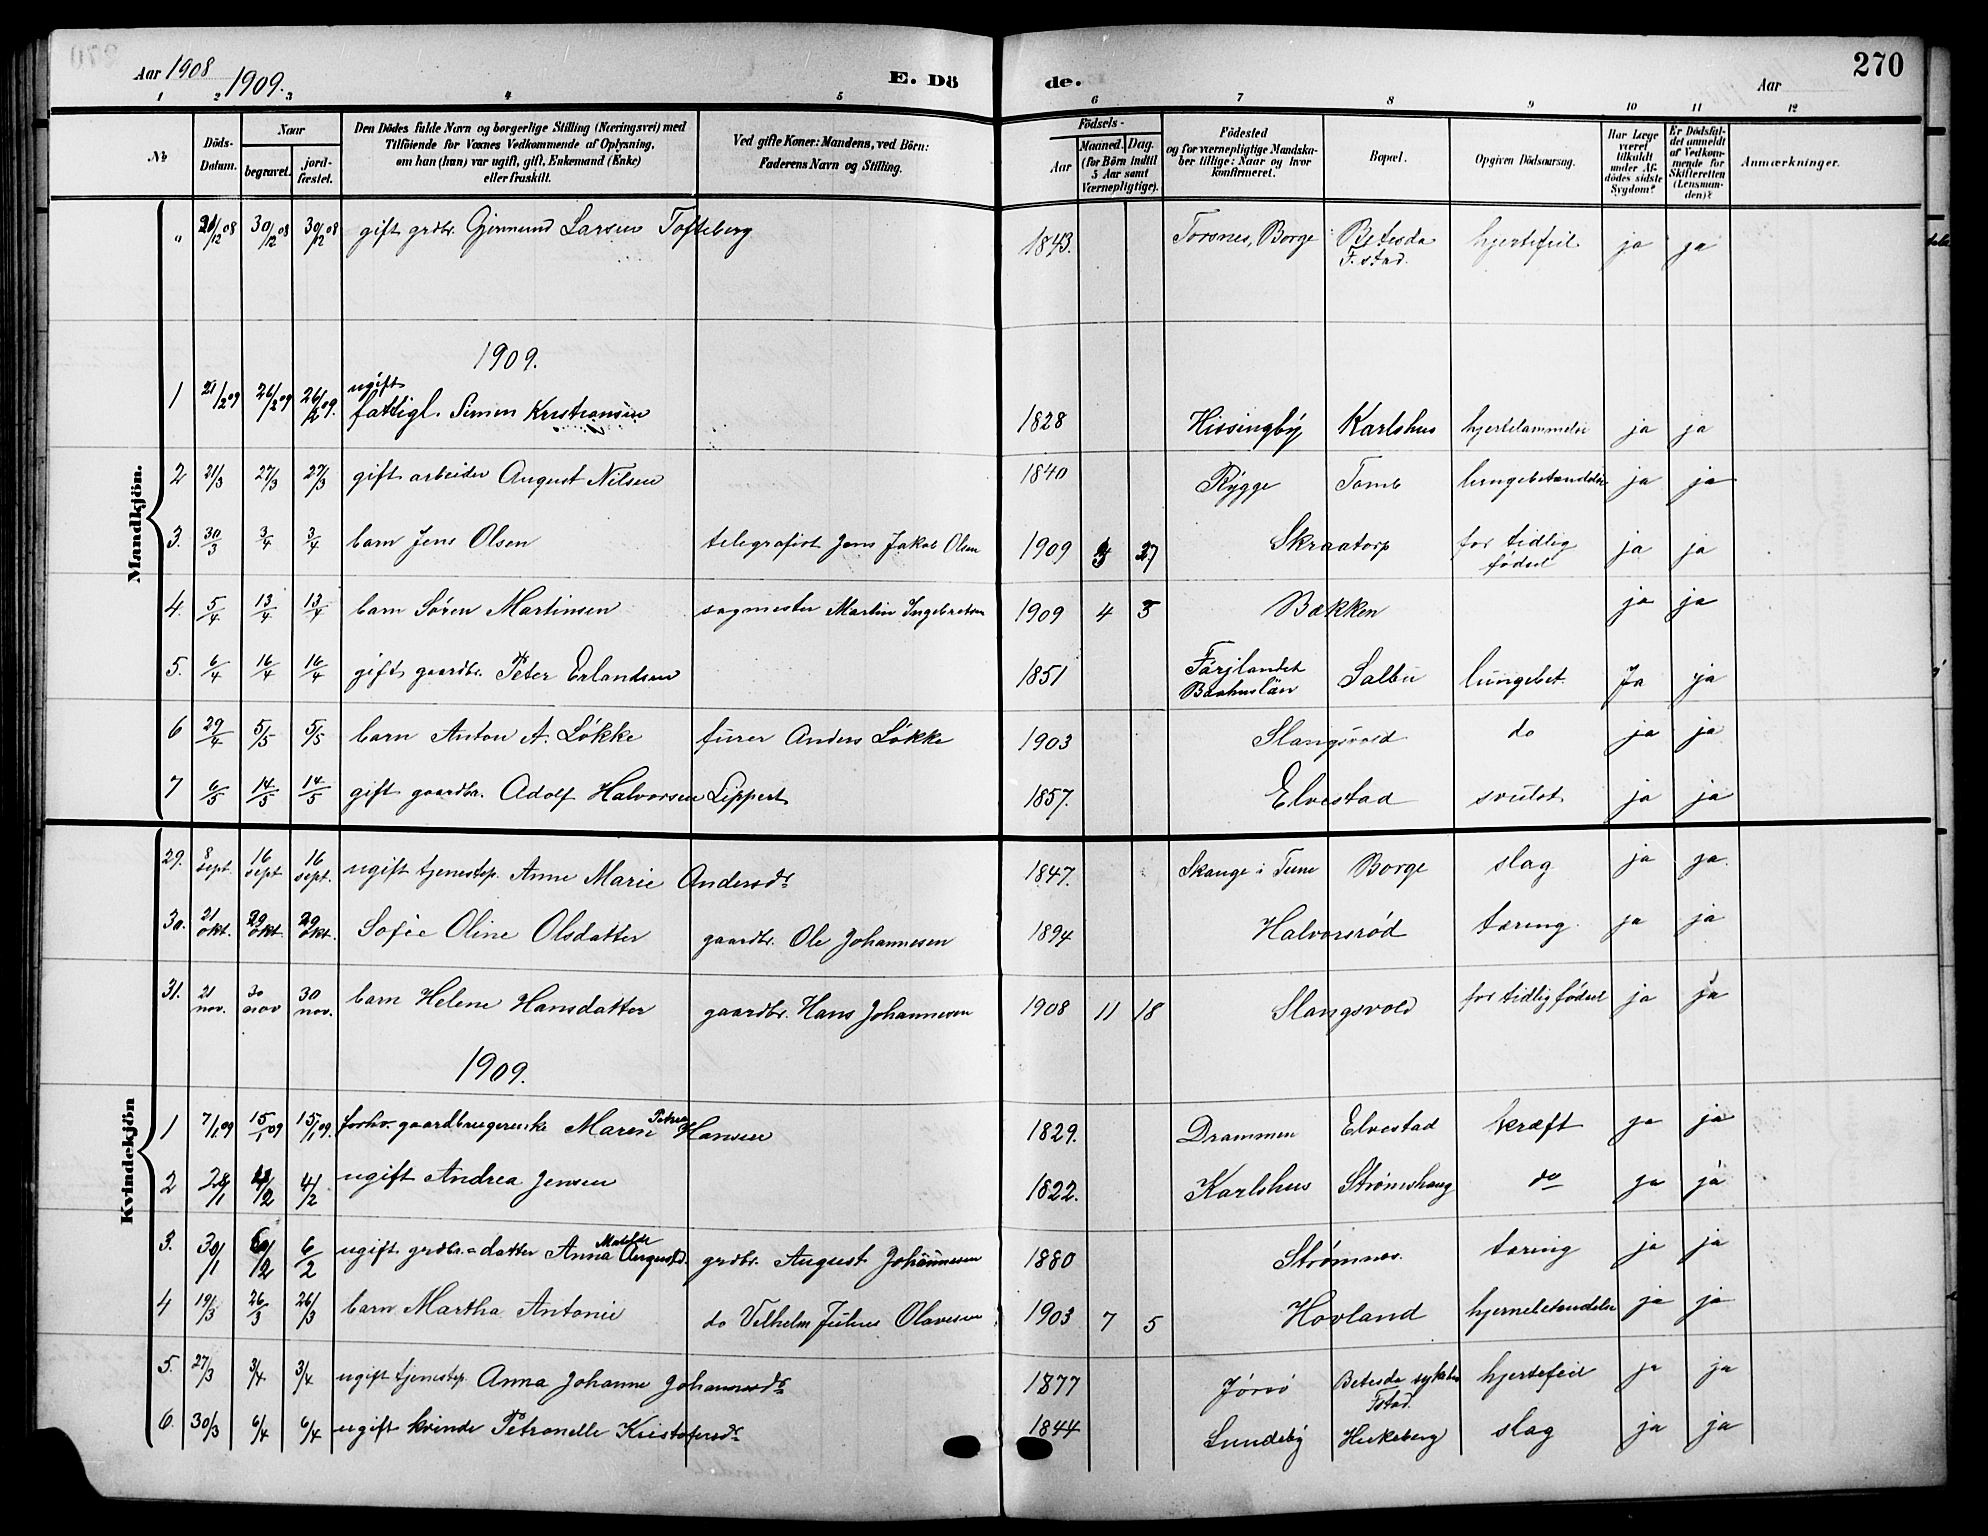 Aar 1908
1909.
E. Dö
de.
Aar
270
1 2 3 4 5 6 7 8 9 10 11 12
No
Döds-Datum.
Naar
begravet.
jord-fæstet.
Den Dödes fulde Navn og borgerlige Stilling (Næringsvei) med
Tilföiende for Voxnes Vedkommende af Oplysning,
om han (hun) var ugift, gift, Enkemand (Enke)
eller fraskilt.
Ved gifte Koner: Mandens, ved Börn:
Faderens Navn og Stilling.
Födsels-
Aar
Maaned. Dag.
(for Börn indtil
5 Aar samt
Værnepligtige).
Födested
og for værnepligtige Mandska-
ber tillige: Naar og hvor
konfirmeret.
Bopæl.
Opgiven Dödsaarsag.
Har Læge
været
tilkaldt
under Af-
dödes sidste
Sygdom?
Er Dödsfal-
det anmeldt
af Vedkom-
mende for
Skifteretten
(Lensman-
den)?
Anmærkninger.
Mandkjön.
" /12 08 30/12 08 30/12 08 gift grdbr. Gjermund Larsen Tofteberg 1843. Torsnes, Borge Betesda F.stad. hjertefeil ja ja
1909.
1 21/2 09 26/2 09 26/2 09. ugift fattigl. Simen Kristiansen 1828 Hissingby Karlshus hjertelammelse ja ja
2 21/3 27/3 27/3 gift arbeider August Nilsen 1840 Rygge Tomb lungebetændelse ja ja
3. 30/3 3/4 3/4 barn Jens Olsen telegrafist Jens Jakob Olsen 1909 3 27 Skraatorp for tidlig födsel ja ja
4. 5/4 13/4 13/4 barn Sören Martinsen sagmester Martin Ingebretsen 1909 4 5 Bækken ja ja
5. 6/4 16/4 16/4 gift gaardbr. Peter Erlandsen 1851 Färjlandet Baahuslän Salbu lungebet. Ja ja
6 29/4 5/5 5/5 barn Anton A. Løkke furer Anders Løkke 1903 Slangsvold do ja ja
7 6/5 14/5 14/5 gift gaardbr. Adolf Halvorsen Lippert 1857. Elvestad svulst ja ja
Kvindekjön
29. 8 sept. 16 sept 16 sept. ugift tjenestep. Anne Marie Andersdr 1847. Skauge i Tune Borge slag ja ja.
30. 21 okt. 29 okt. 29 okt. Sofie Oline Olsdatter gaardbr. Ole Johannesen 1894 Halvorsrød tæring ja ja
31. 21 nov. 30 nov 30 nov. barn Helene Hansdatter gaardbr. Hans Johannesen 1908 11 18 Slangsvold for tidlig födsel ja ja
1909.
1 7/1 09 15/1 09 15/1 09. forhv. gaardbrugerenke Maren Petrea Hansen 1829. Drammen Elvestad kræft ja ja
2 28/1 4/2 4/2 ugift Andrea Jensen 1822. Karlshus Strømshaug do ja ja
3. 30/1 6/2 6/2 ugift grdbr. datter Anna Mathilde Augustd. grdbr. August Johannesen 1880 Strømnes. tæring ja ja
4 19/3 26/3 26/3 barn Martha Antonie do Vilhelm Julius Olavesen 1903 7 5 Hovland hjernebetændelse ja ja
5. 27/3 3/4 3/4 ugift tjenestep. Anna Johanne Johannesdr 1877 Jörsö Betesda sykehus Fstad. hjertefeil ja ja
6. 30/3 6/4 6/4 ugift kvinde Petronelle Kristofersdr 1844 Lundeby Huikeberg slag ja ja